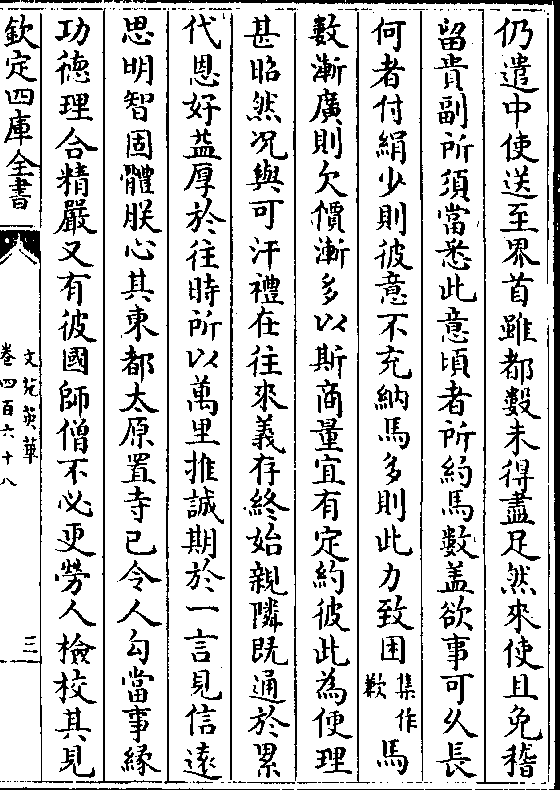 仍遣中使送至界首雖都數未得盡足然來使且免稽
留貴副所須當悉此意頃者所約馬數盖欲事可久長
何者付絹少則彼意不充納馬多則此力致困集作歉馬
數漸廣則欠價漸多以斯商量宜有定約彼此為便理
甚昭然况與可汗禮在往來義存終始親隣既通於累
代恩好益厚於往時所以萬里推誠期於一言見信遠
思明智固體朕心其東都太原置寺已令人勾當事縁
功德理合精嚴又有彼國師僧不必更勞人檢校其見
欽定四庫全書
文苑英華
卷四百六十八
三